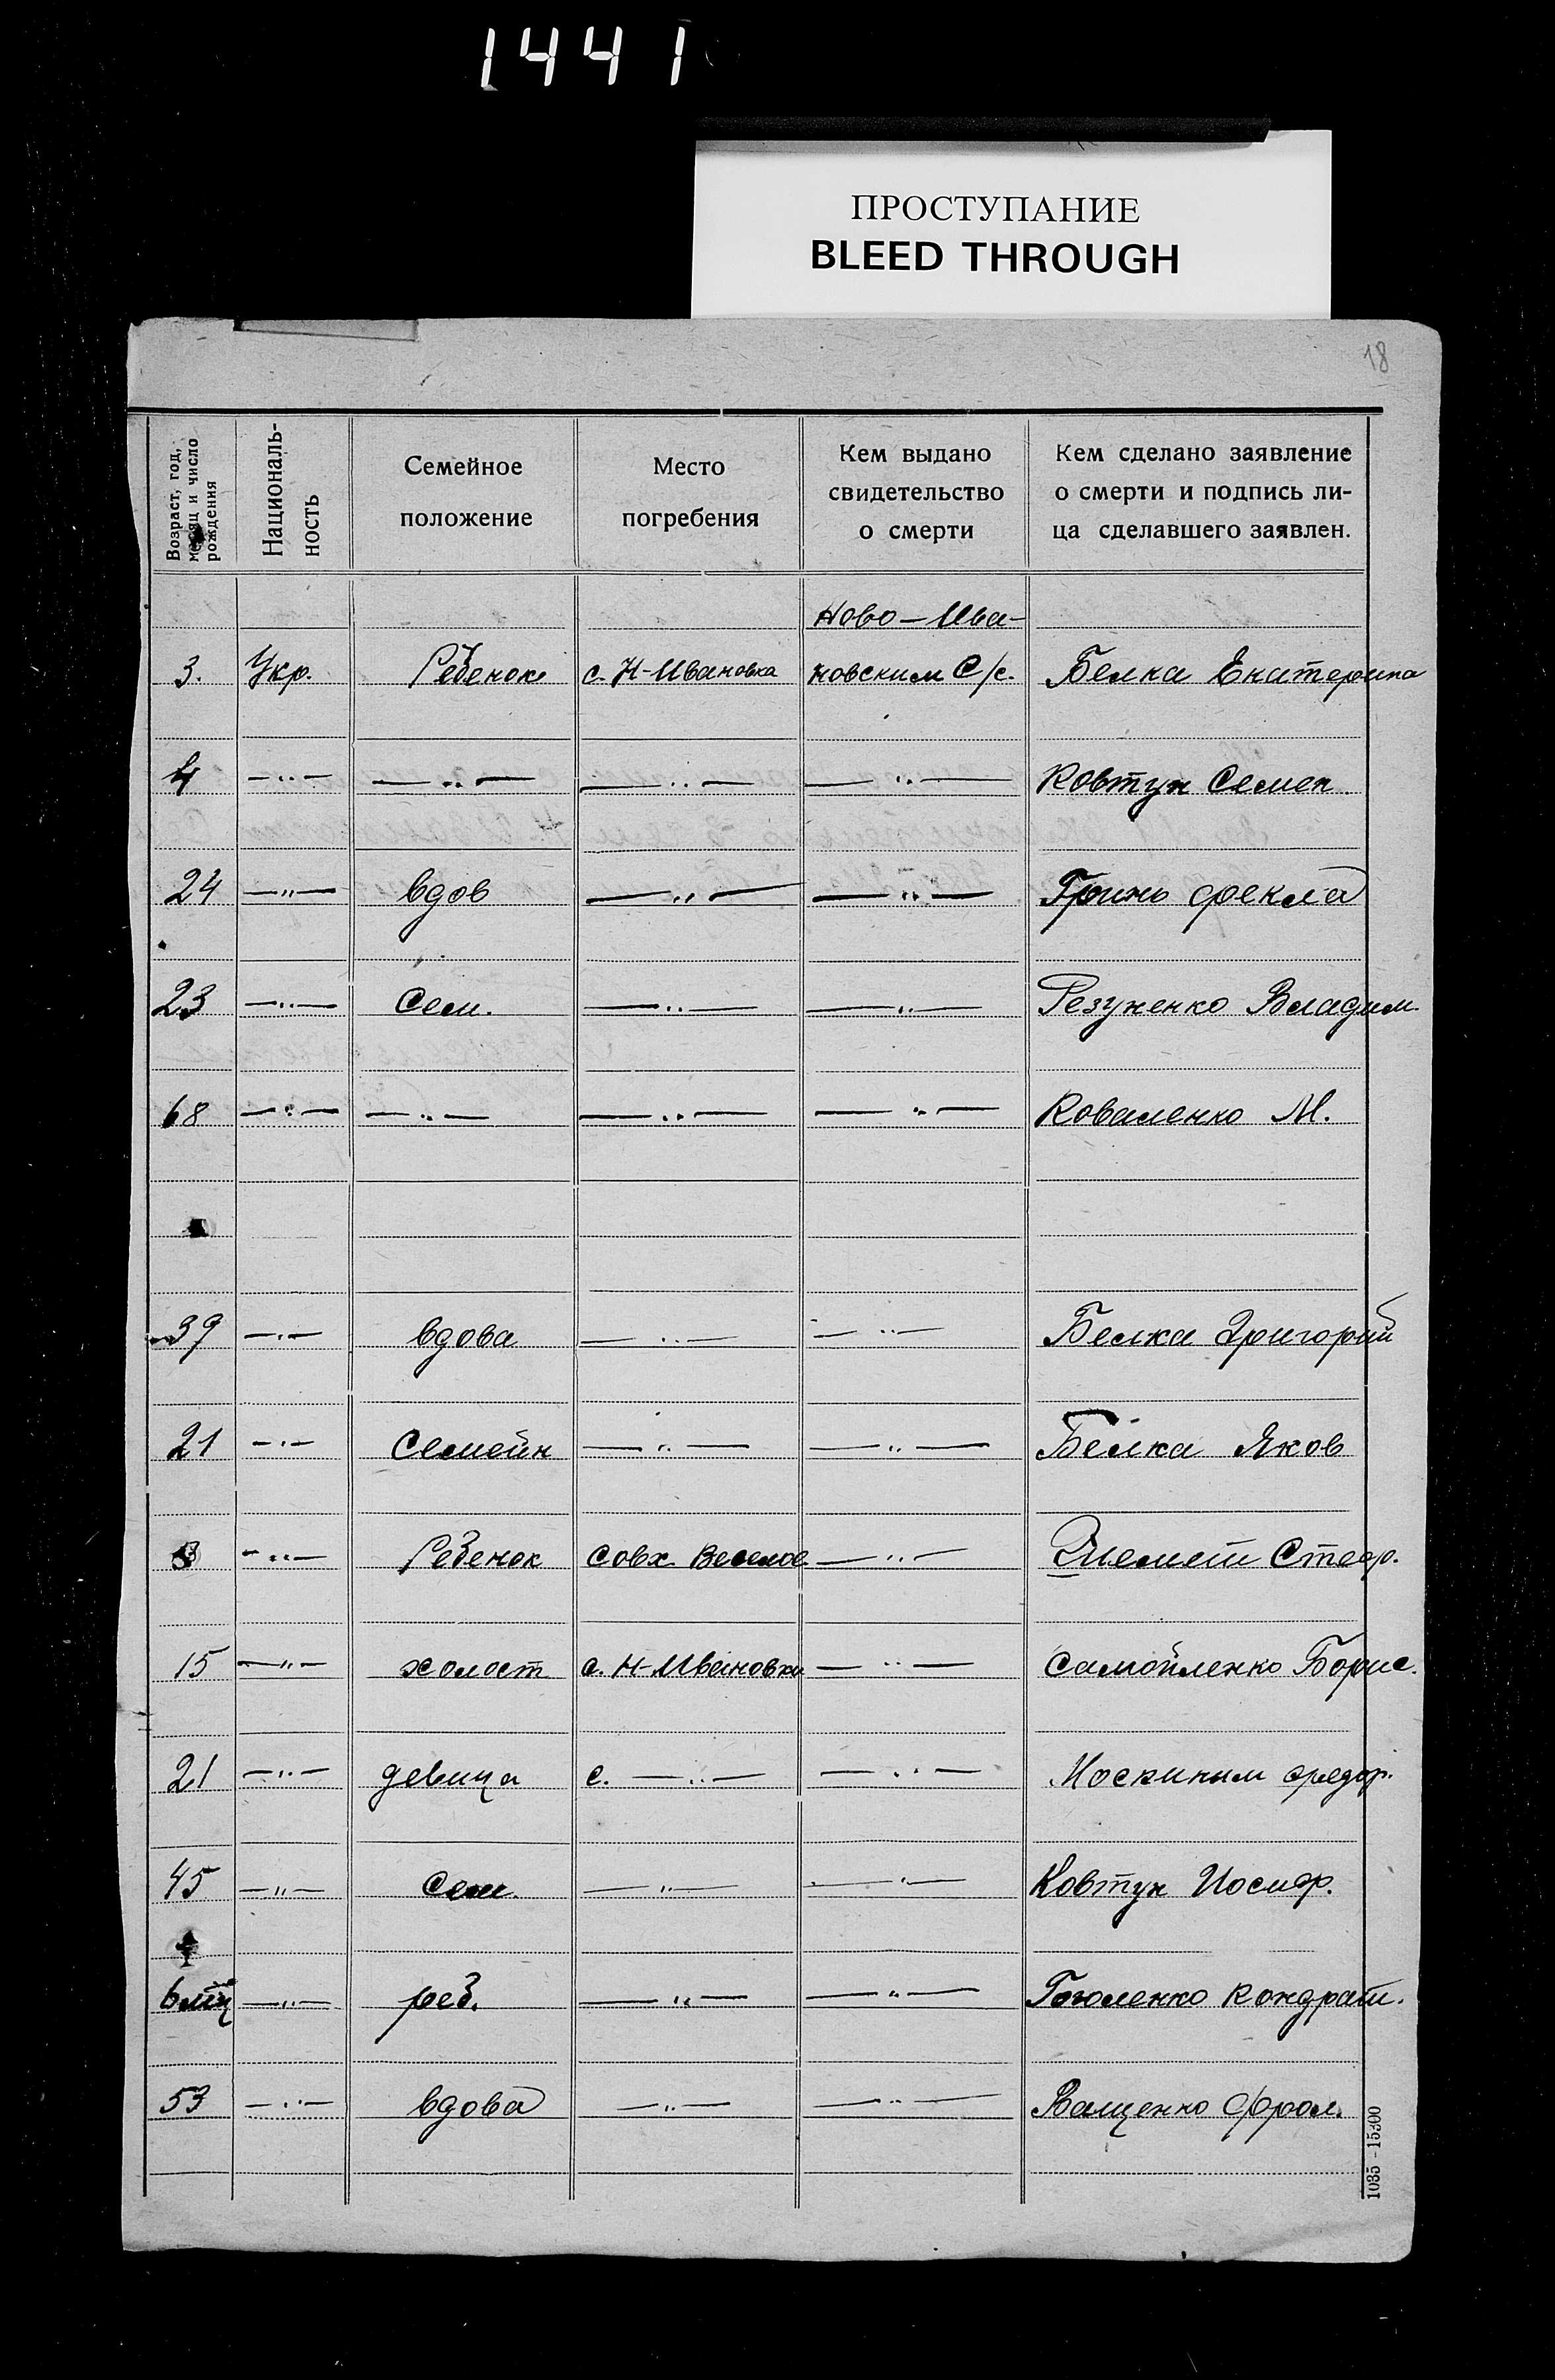 1441
ПРОСТУПАНИЕ
BLEED THROUGH
18
Возраст, год, месяц и число рождения
Националь-ность
Семейное положение
Место погребения
Кем выдано свидетельство о смерти
Кем сделано заявление о смерти и подпись ли-ца сделавшего заявлен.
Ново-Ива-
3. Укр. Ребенок с. Н-Ивановка новским С/с. Белка Екатерина
4 —〃— —〃— —〃— —〃— Ковтун Семен
24 —〃— вдов —〃— —〃— Гринь Фекла
23 —〃— Сем. —〃— —〃— Резуненко Владим.
68 —〃— —〃— —〃— —〃— Коваленко М.
39 —〃— вдова —〃— —〃— Белка Григорий
21 —〃— Семейн —〃— —〃— Белка Яков
3 —〃— Ребенок Совх. Веселое —〃— Стеф.
15 —〃— холост с. Н-Ивановки —〃— Самойленко Борис.
21 —〃— девица с. —〃— —〃— Москиным Федор.
45 —〃— Сем. —〃— —〃— Ковтун Иосиф.
6 мц —〃— реб. —〃— —〃— Гоголенко Кондрат.
53 —〃— вдова —〃— —〃— Ващенко Фрол.
1035-15300